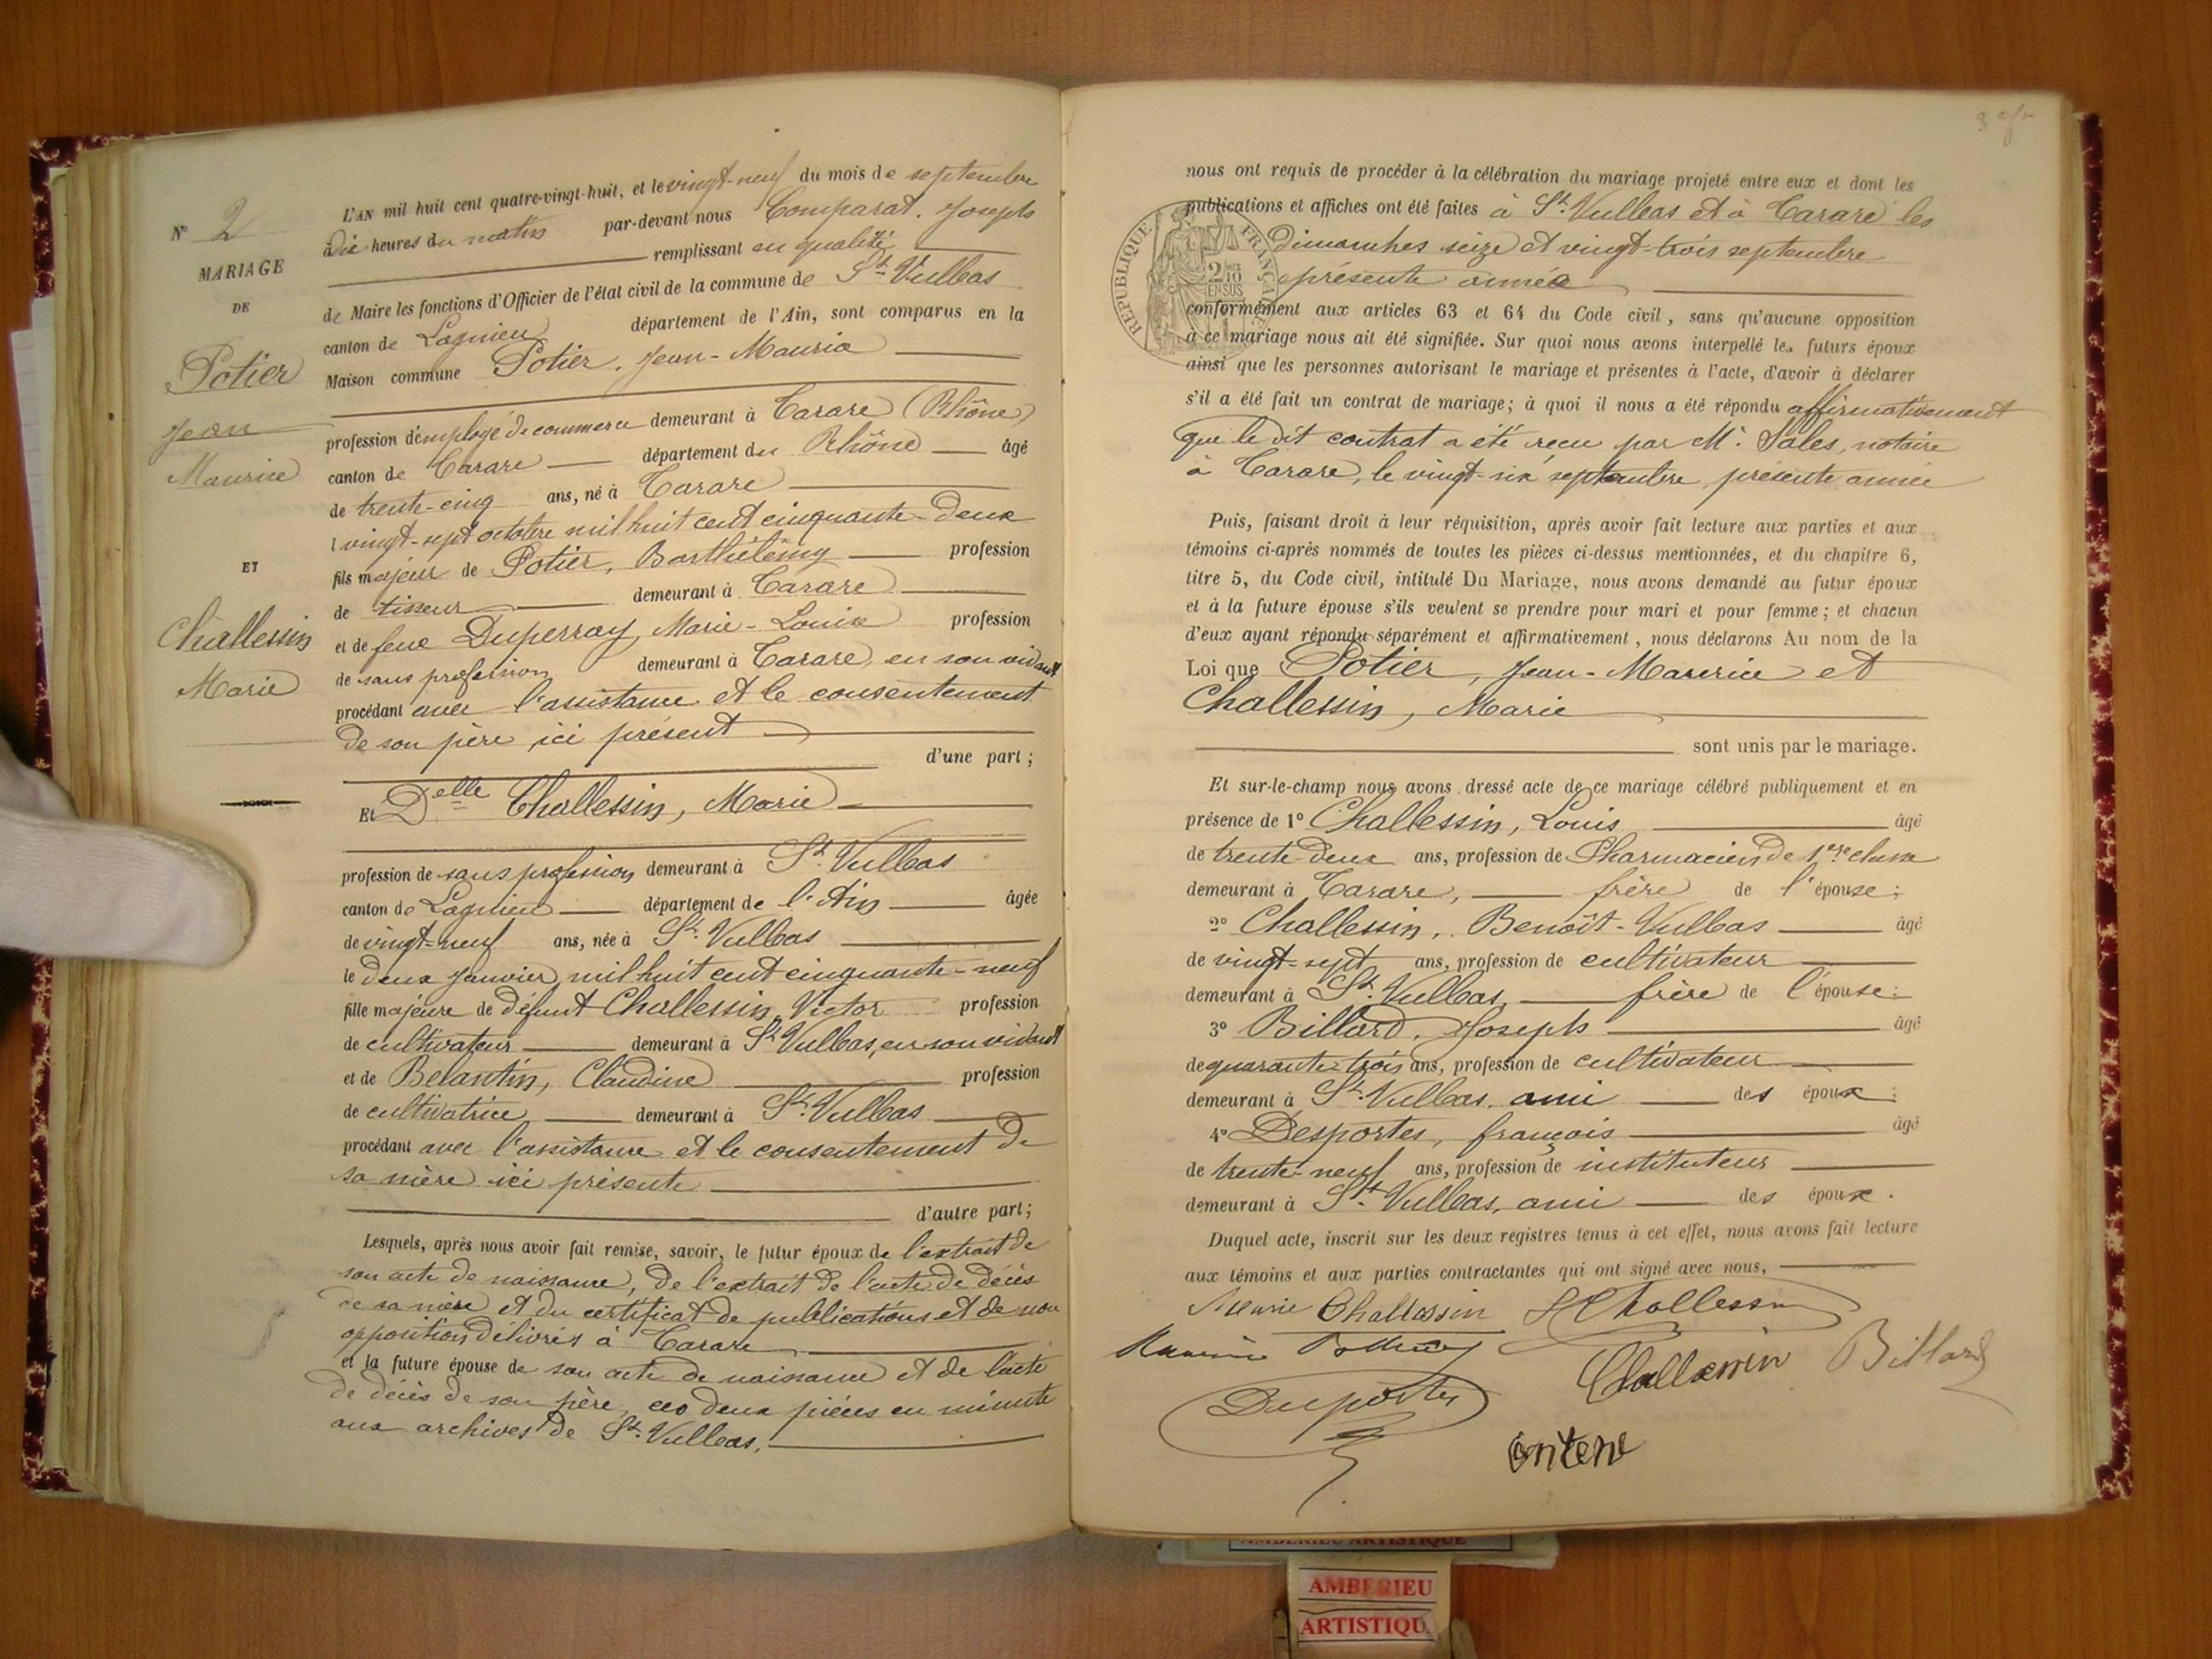 N° 2
MARIAGE
DE
Potier
Jean
Maurice
ET
Challessin
Marie
L'AN mil huit cent quatre-vingt-huit, et le vingt-neuf du mois de septembre
à dix heures du matin par-devant nous Comparat, Joseph
remplissant en qualité
de Maire les fonctions d'Officier de l'état civil de la commune de St Vulbas
canton de Lagnieu département de l'Ain, sont comparus en la
Maison commune Potier, Jean-Maurice
profession d'employé de commerce demeurant à Tarare (Rhône)
canton de Tarare département du Rhône âgé
de trente-cinq ans, né à Tarare
l vingt-sept octobre mil huit cent cinquante-deux
fils majeur de Potier, Barthélemy profession
de tisseur demeurant à Tarare
et de feue Duperray, Marie-Louise profession
de sans profession demeurant à Tarare, en son vivant
procédant avec l'assistance et le consentement
de son père ici présent
d'une part;
Et Delle Challessin, Marie
profession de sans profession demeurant à St Vulbas
canton de Lagnieu département de l'Ain âgée
de vingt-neuf ans, née à St Vulbas
le deux janvier mil huit cent cinquante-neuf
fille majeure de défunt Challessin, Victor profession
de cultivateur demeurant à St Vulbas, en son vivant
et de Belantin, Claudine profession
de cultivatrice demeurant à St Vulbas
procédant avec l'assistance et le consentement de
sa mère ici présente
d'autre part;
Lesquels, après nous avoir fait remise, savoir, le futur époux de l'extrait de
son acte de naissance, de l'extrait de l'acte de décès
de sa mère et du certificat de publications et de non
opposition délivrés à Tarare
et la future épouse de son acte de naissance et de l'acte
de décès de son père, ces deux pièces en minute
aux archives de St Vulbas.
nous ont requis de procéder à la célébration du mariage projeté entre eux et dont les
publications et affiches ont été faites à St Vulbas et à Tarare les
dimanches seize et vingt-trois septembre
présente année
REPUBLIQUE FRANÇAISE
2 10
EN SUS
conformément aux articles 63 et 64 du Code civil, sans qu'aucune opposition
à ce mariage nous ait été signifiée. Sur quoi nous avons interpellé les futurs époux
ainsi que les personnes autorisant le mariage et présentes à l'acte, d'avoir à déclarer
s'il a été fait un contrat de mariage; à quoi il nous a été répondu affirmativement
que le dit contrat a été reçu par Me. Sales, notaire
à Tarare, le vingt-six septembre, présente année
Puis, faisant droit à leur réquisition, après avoir fait lecture aux parties et aux
témoins ci-après nommés de toutes les pièces ci-dessus mentionnées, et du chapitre 6,
titre 5, du Code civil, intitulé Du Mariage, nous avons demandé au futur époux
et à la future épouse s'ils veulent se prendre pour mari et pour femme; et chacun
d'eux ayant répondu séparément et affirmativement, nous déclarons Au nom de la
Loi que Potier, Jean-Maurice et
Challessin, Marie
sont unis par le mariage.
Et sur-le-champ nous avons dressé acte de ce mariage célébré publiquement et en
présence de 1° Challessin, Louis âgé
de trente-deux ans, profession de Pharmacien de 1ère classe
demeurant à Tarare, frère de l'épouse;
2° Challessin, Benoît-Vulbas âgé
de vingt-sept ans, profession de cultivateur
demeurant à St Vulbas, frère de l'épouse:
3° Billard, Joseph âgé
de quarante-trois ans, profession de cultivateur
demeurant à St Vulbas, ami des époux;
4° Desportes, françois âgé
de trente-neuf ans, profession de instituteur
demeurant à St Vulbas, ami des époux.
Duquel acte, inscrit sur les deux registres tenus à cet effet, nous avons fait lecture
aux témoins et aux parties contractantes qui ont signé avec nous,
Marie Challessin L Challessin
Challessin Billard
Desportes
AMBERIEU ARTISTIQUE
AMBERIEU
ARTISTIQU